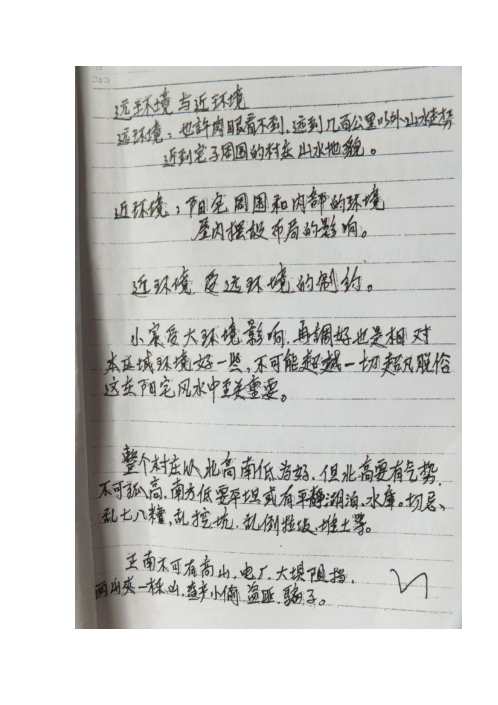 远环境与近环境
远环境：也許肉眼看不到，远到几百公里以外山水走势
近到宅子周围的村庄山水地貌。
近环境：阳宅周围和内部的环境
屋内摆放布局的影响。
近环境受远环境的制约。
小家受大环境影响，再調好也是相对
本区域环境好一些，不可能超越一切超凡脱俗
这在阳宅风水中至关重要。
整个村庄以北高南低为好，但北高要有气势，
不可孤高，南方低要平坦或有平静湖泊、水库。切忌、
乱七八糟，乱挖坑、乱倒垃圾、堆土等。
正南不可有高山、电厂、大坝阻挡，
两山夹一山，小偷、盗匪、骗子。